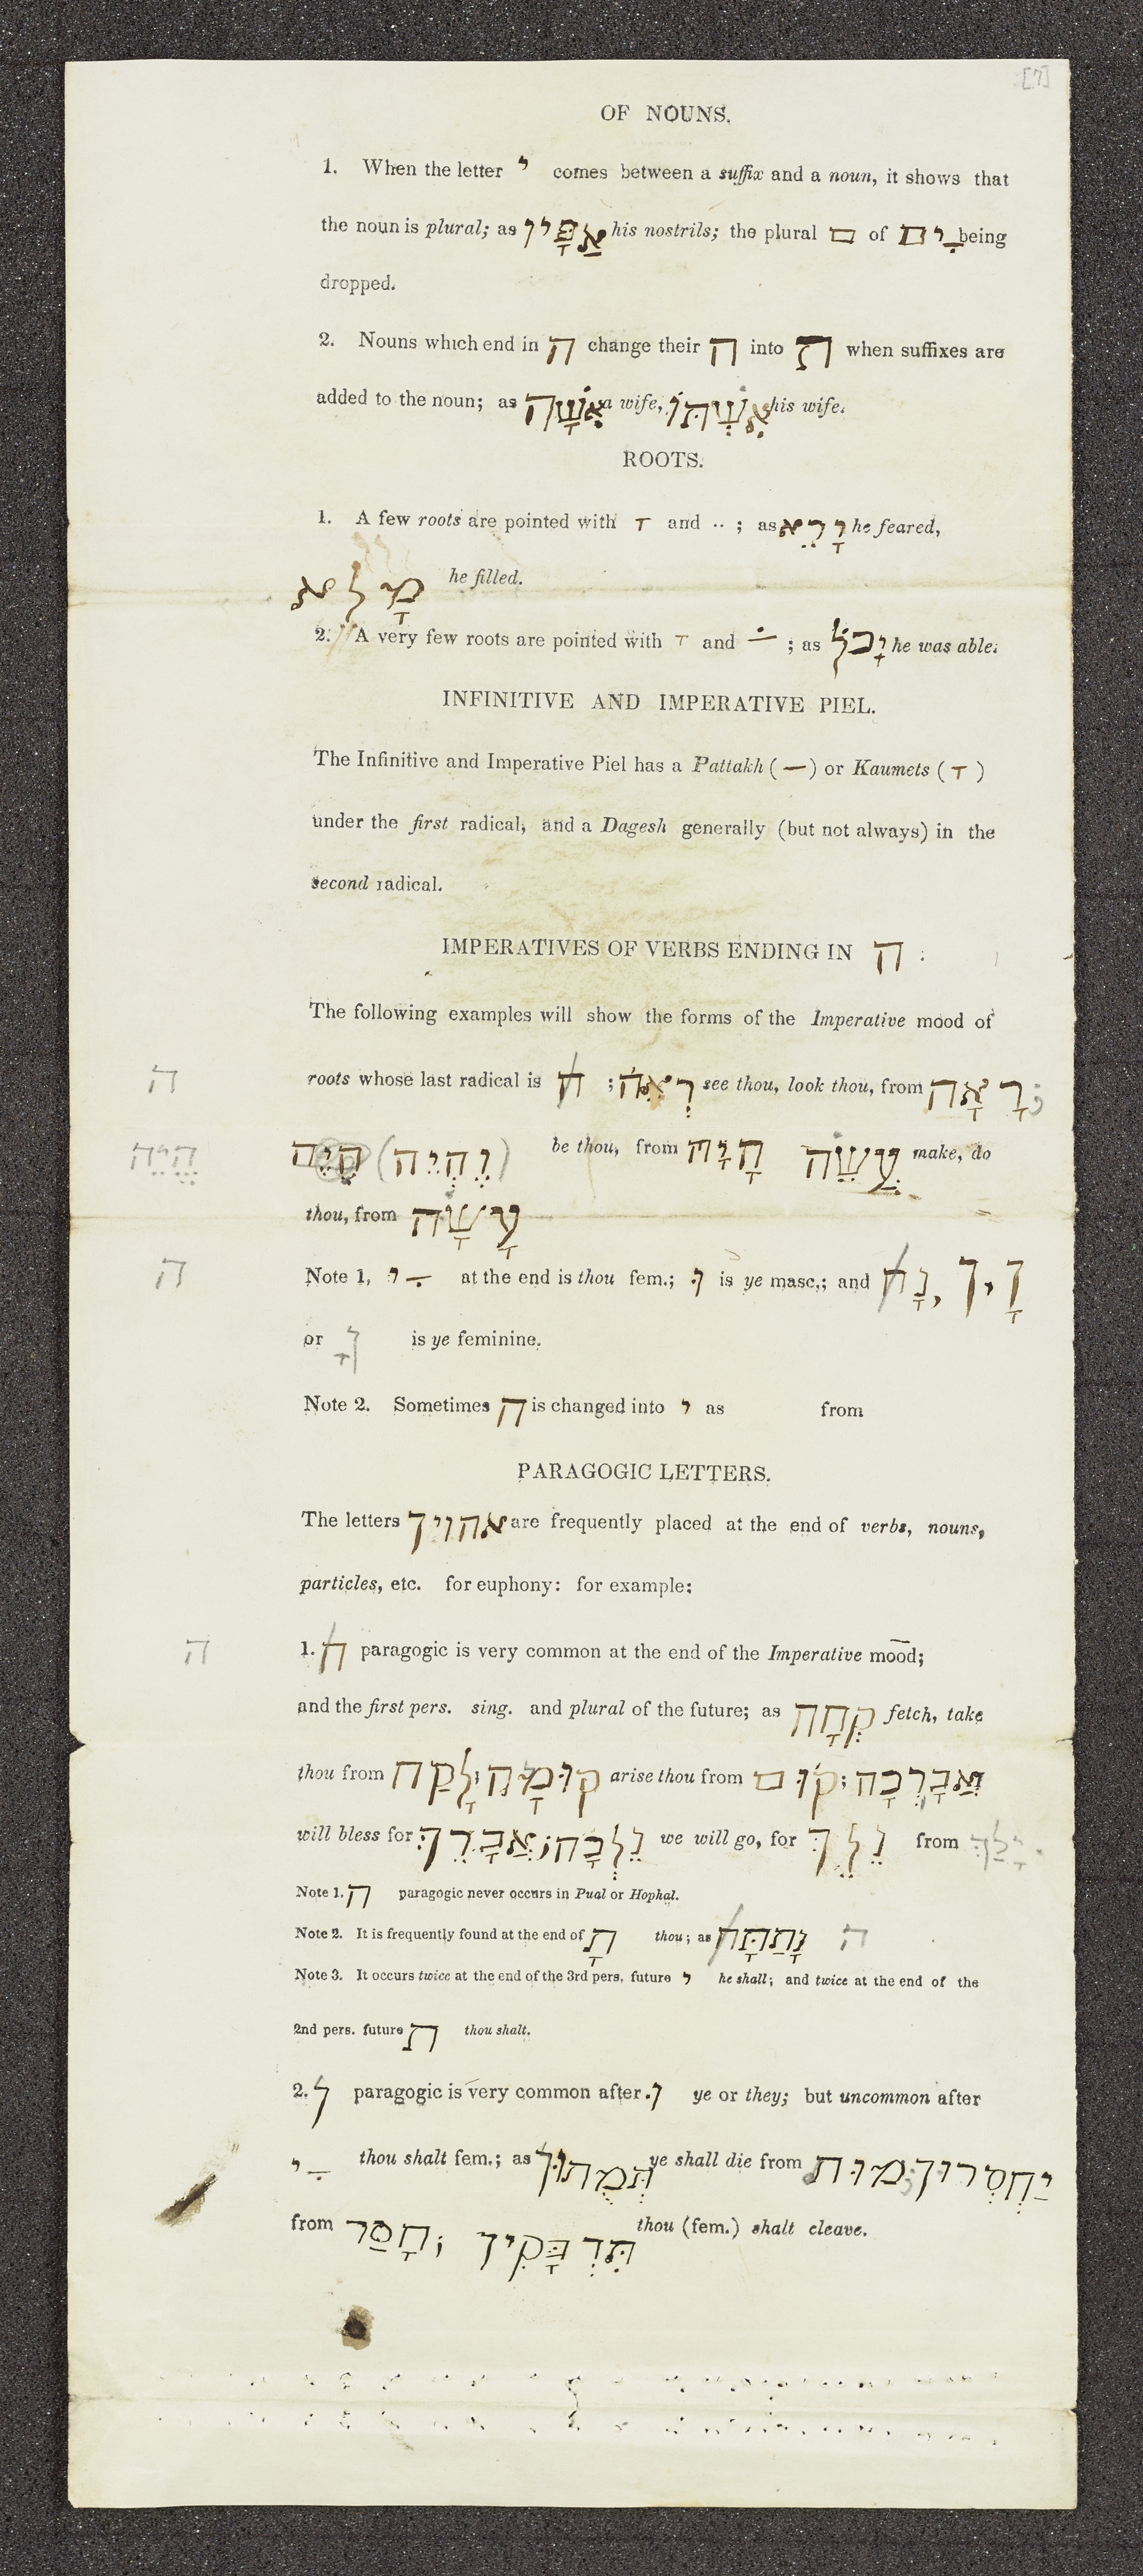 [7]
OF NOUNS.
1. When the letter י comes between a suffix and a noun, it shows that
the noun is plural; as אַפָּיו his nostrils; the plural ם of ִים being
dropped.
2. Nouns which end in ה change their ה into ת when suffixes are
added to the noun; as אִשָּׁה a wife, אִשְׁתּוֹ his wife.
ROOTS.
1. A few roots are pointed with ָ and ֵ ; as יָרֵא he feared,
מָלֵא he filled.
2. A very few roots are pointed with ָ and ֹ ; as יָכֹל he was able.
INFINITIVE AND IMPERATIVE PIEL.
The Infinitive and Imperative Piel has a Pattakh ( ַ ) or Kaumets ( ָ )
under the first radical, and a Dagesh generally (but not always) in the
second radical.
IMPERATIVES OF VERBS ENDING IN ה :
The following examples will show the forms of the Imperative mood of
ה roots whose last radical is ה ; רְאֵה see thou, look thou, from רָאָה ;
הֱיֵה הֱיֵה be thou, from הָיָה עֲשֵׂה make, do
thou, from עָשָׂה
ה Note 1, ִי at the end is thou fem.; וּ is ye masc.; and נָה
or ןָ is ye feminine.
Note 2. Sometimes ה is changed into י as from
PARAGOGIC LETTERS.
The letters אהוין are frequently placed at the end of verbs, nouns,
particles, etc. for euphony: for example:
ה 1. ה paragogic is very common at the end of the Imperative mood;
and the first pers. sing. and plural of the future; as קְחָה fetch, take
thou from לָקַח ; קוּמָה arise thou from קוּם ; אֲבָרְכָה
will bless for אֲבָרֵךְ ; נֵלְכָה we will go, for נֵלֵךְ from יָלַךְ
Note 1. ה paragogic never occurs in Pual or Hophal.
Note 2. It is frequently found at the end of תָ thou; as נָתַתָּה ה
Note 3. It occurs twice at the end of the 3rd pers. future י he shall; and twice at the end of the
2nd pers. future ת thou shalt.
2. ן paragogic is very common after וּ ye or they; but uncommon after
ִי thou shalt fem.; as תְּמֻתוּן ye shall die from מוּת ; יַחְסְרוּן
from חָסַר ; תִּדְבָּקִין thou (fem.) shalt cleave.